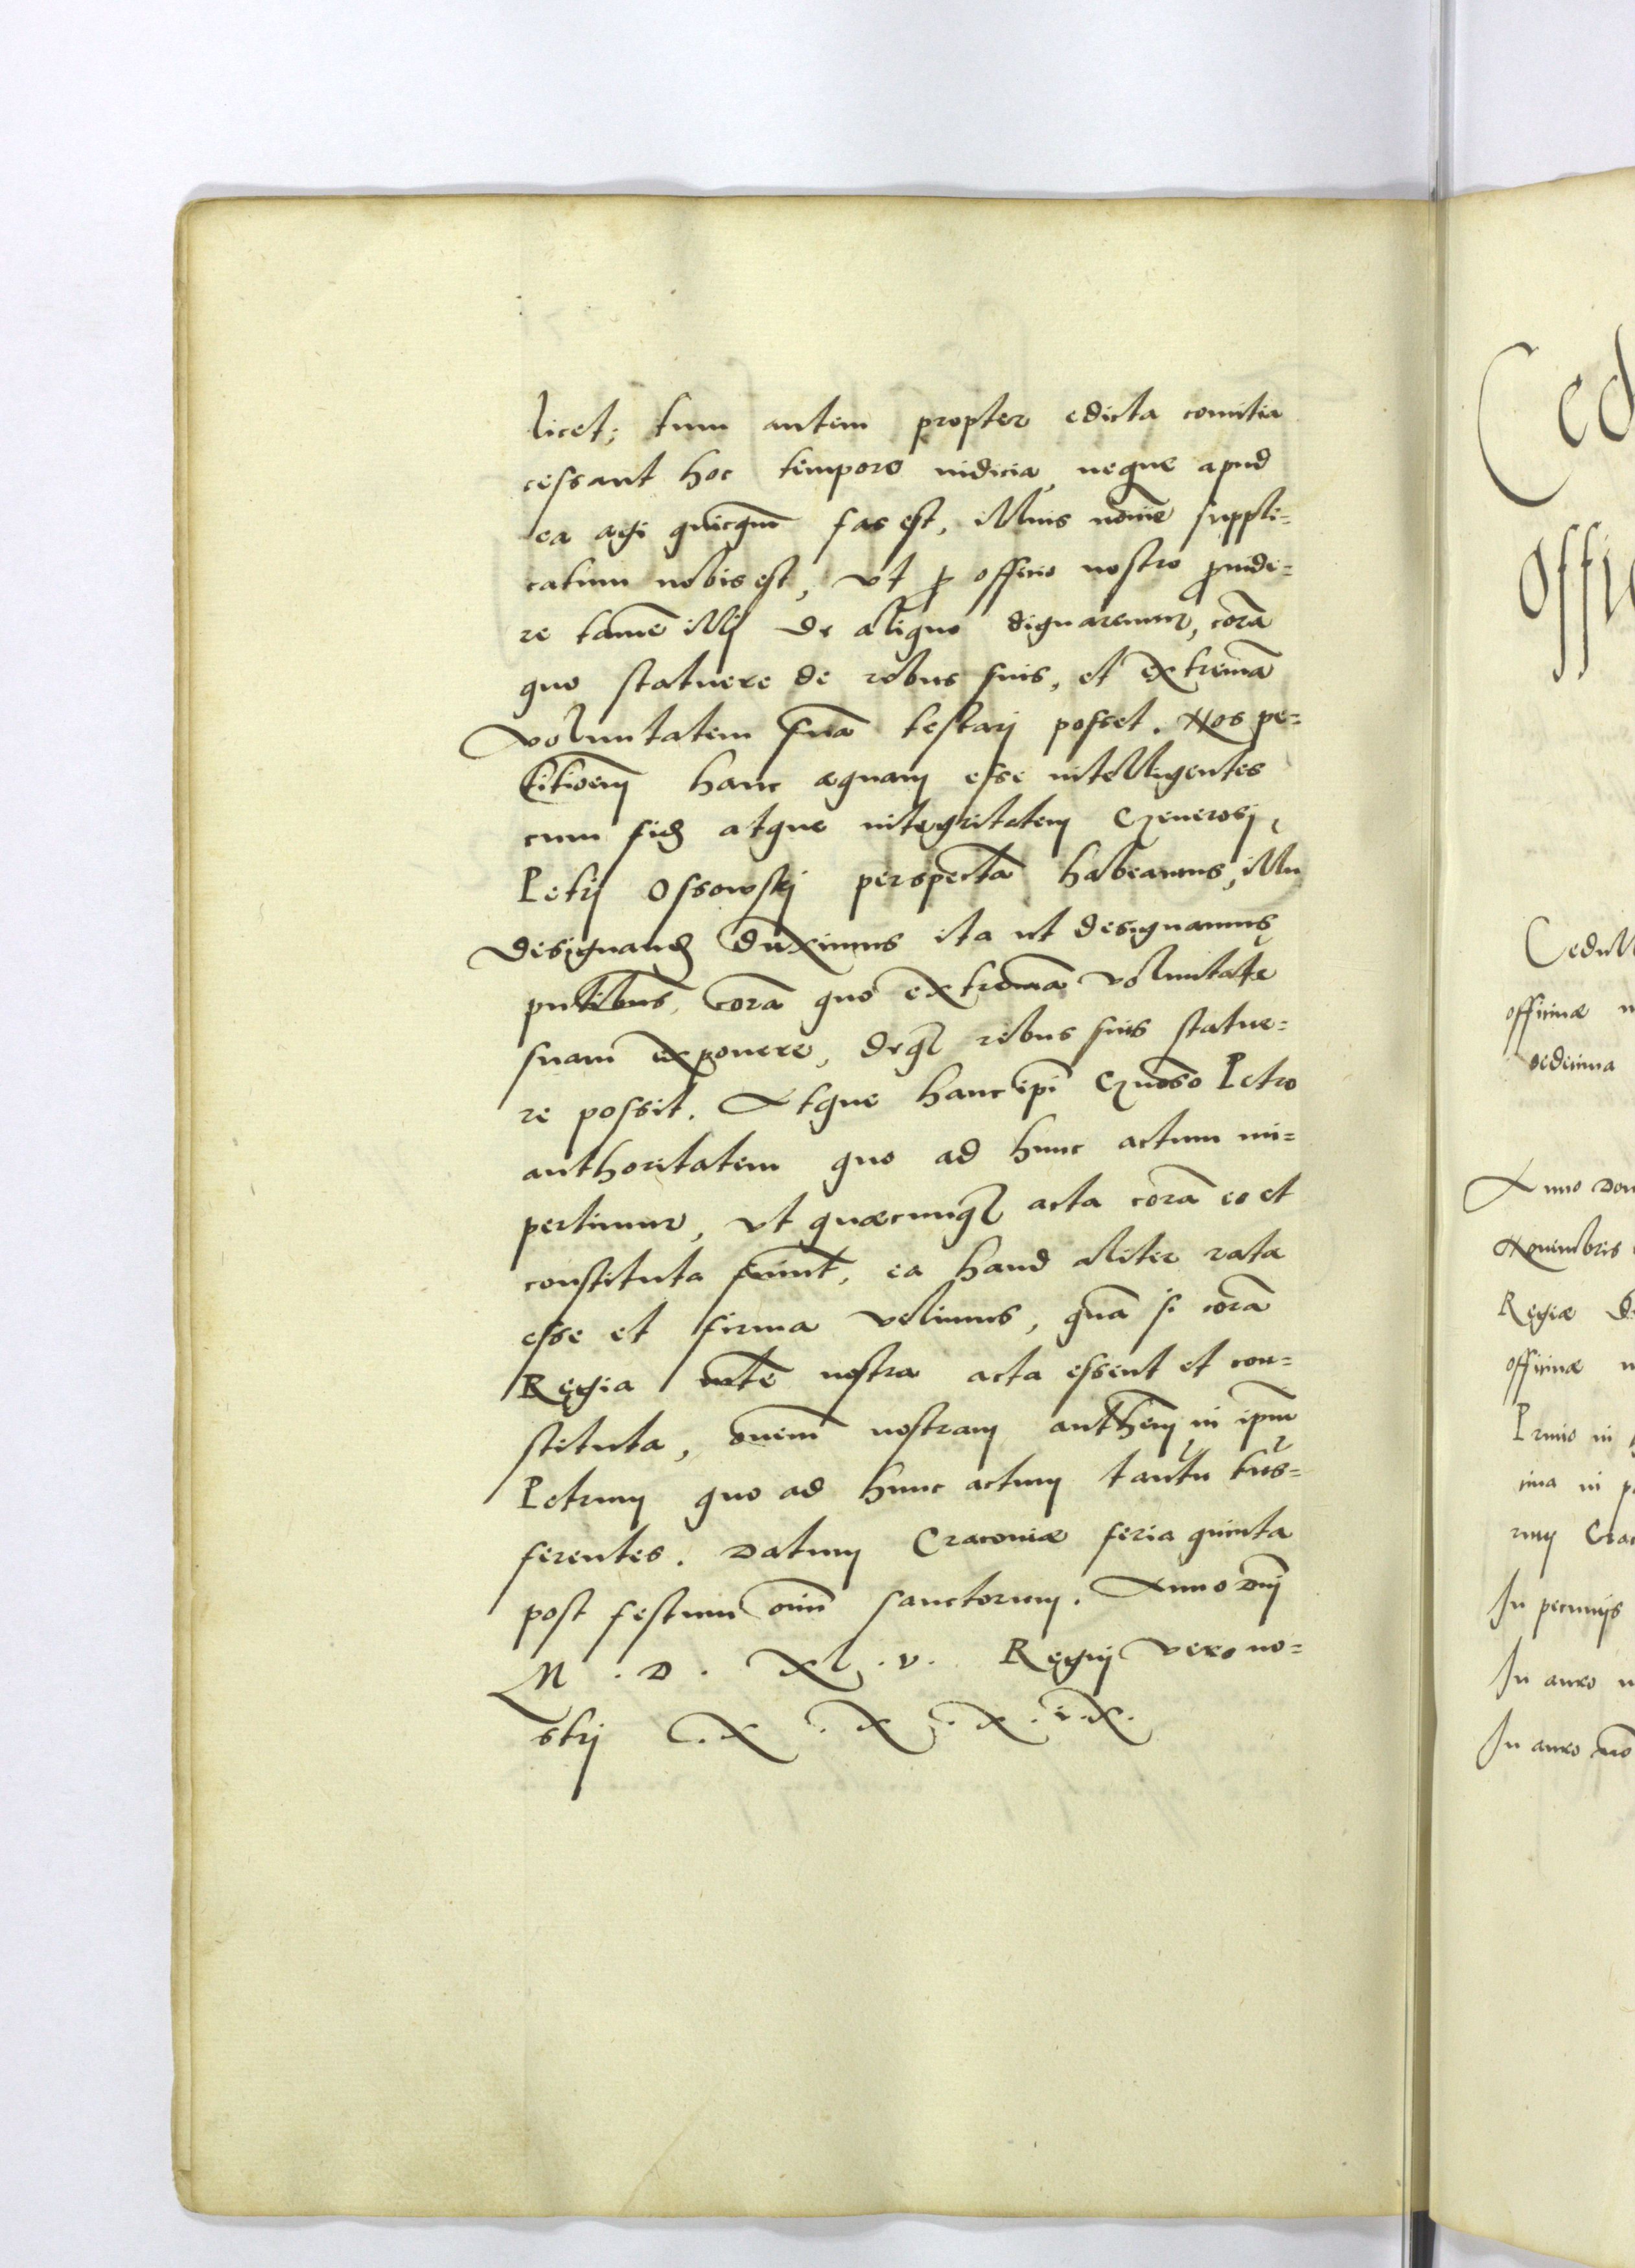 licet; tum autem propter edicta comitia
cessant hoc tempore iudicia, neque apud
ea agi quicqm̄ fas est, illius nōmīe suppli=
catum nobis est, vt ꝓ officio nostro ꝓuide=
re tamē illj de aliquo dignaremur, corā
quo statuere de rebus suis, et extremā
voluntatem suā testarj posset. Nos pe=
titioem̄ hanc aequam esse intelligentes
cum fidẽ atque integritatem Generosj
Petrj Ossowskj perspectā habeamus, illū
designandũ duximus ita ut designamus
pn̄tibus, corā quo extremā voluntatē
suam exponere, deq̨ rebus suis statue=
re possit. Atque hanc ip̄i Gn̄oso Petro
authoritatem quo ad hunc actum im=
pertimur, vt quaecunq̨ acta corā eo et
constituta fuerint, ea haud aliter rata
esse et firma velimus, quā si corā
Regia mt̄e nostra acta essent et con=
stituta, om̄em nostram autht̄em in ip̄m
Petrum quo ad hunc actum tantū trns̄=
ferentes. Datum Cracouiae feria quinta
post festum om̄m sanctorum. Anno Dn̄j
M . D . XL . V . Regnj vero no=
strj . X . X . X . i . X .
Ced
offi
Cedull
officinae
sedecima
Anno Dom
Nouembris
Regiae
officinae
Primo in
rum Crac
In pecunijs
In auro
In auro